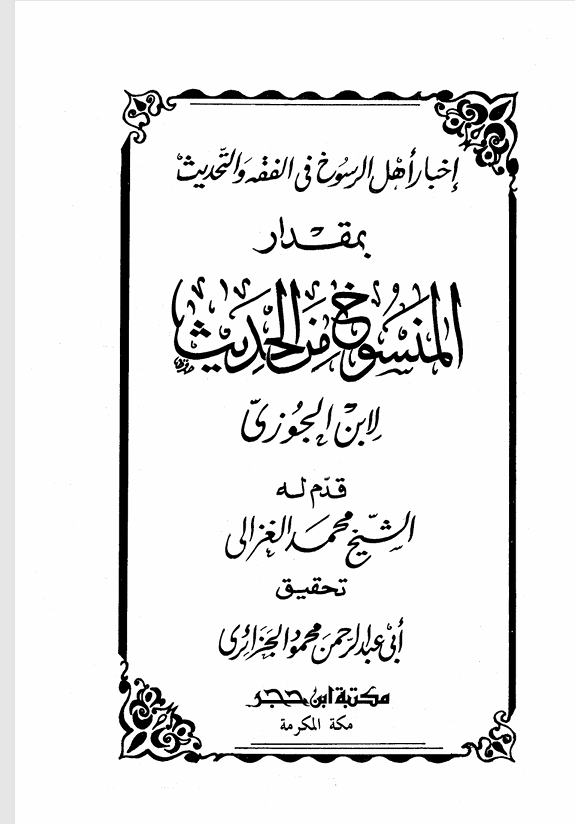 إخبار أهل الرسوخ في الفقه والتحديث
بمقدار
المنسوخ من الحديث
لابن الجوزي
قدم له
الشيخ محمد الغزالي
تحقيق
أبي عبد الرحمن محمود الجزائري
مكتبة ابن حجر
مكة المكرمة